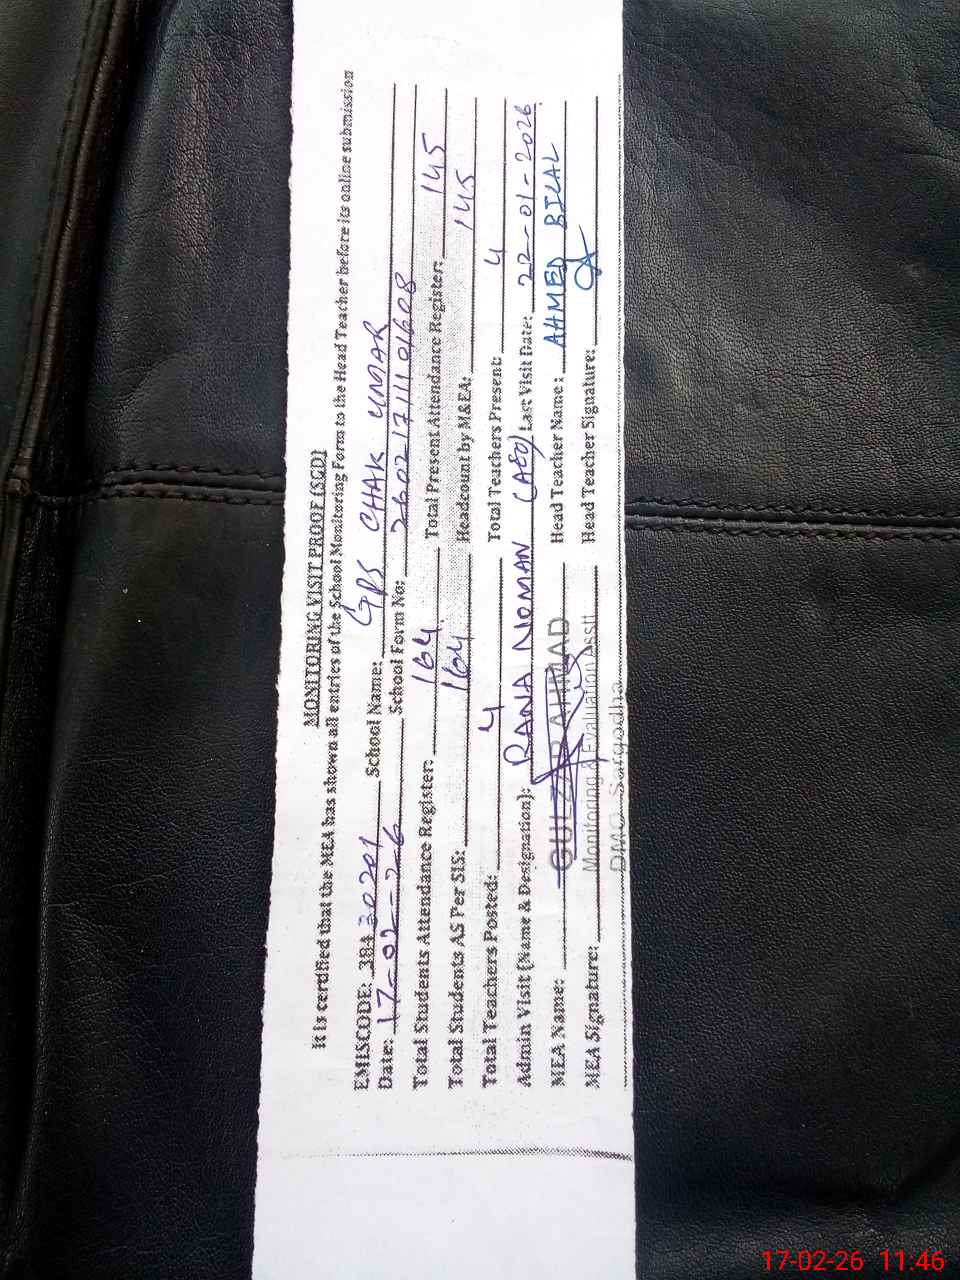 MONITORING VISIT PROOF (SGD)
It is certified that the MEA has shown all entries of the School Monitoring Form to the Head Teacher before its online submission
EMISCODE: 384 30201 School Name: GPS CHAK UMAR
Date: 17-02-26 School Form No: 260217111101608
Total Students Attendance Register: 164 Total Present Attendance Register: 145
Total Students AS Per SIS: 164 Headcount by M&EA: 145
Total Teachers Posted: 4 Total Teachers Present: 4
Admin Visit (Name & Designation): RANA NOMAN (AEO) Last Visit Date: 22-01-2026
MEA Name: GULZAR AHMAD Head Teacher Name: AHMED BILAL
MEA Signature: Monitoring & Evaluation Asstt Head Teacher Signature:
DMO Sargodha
17-02-26 11:46